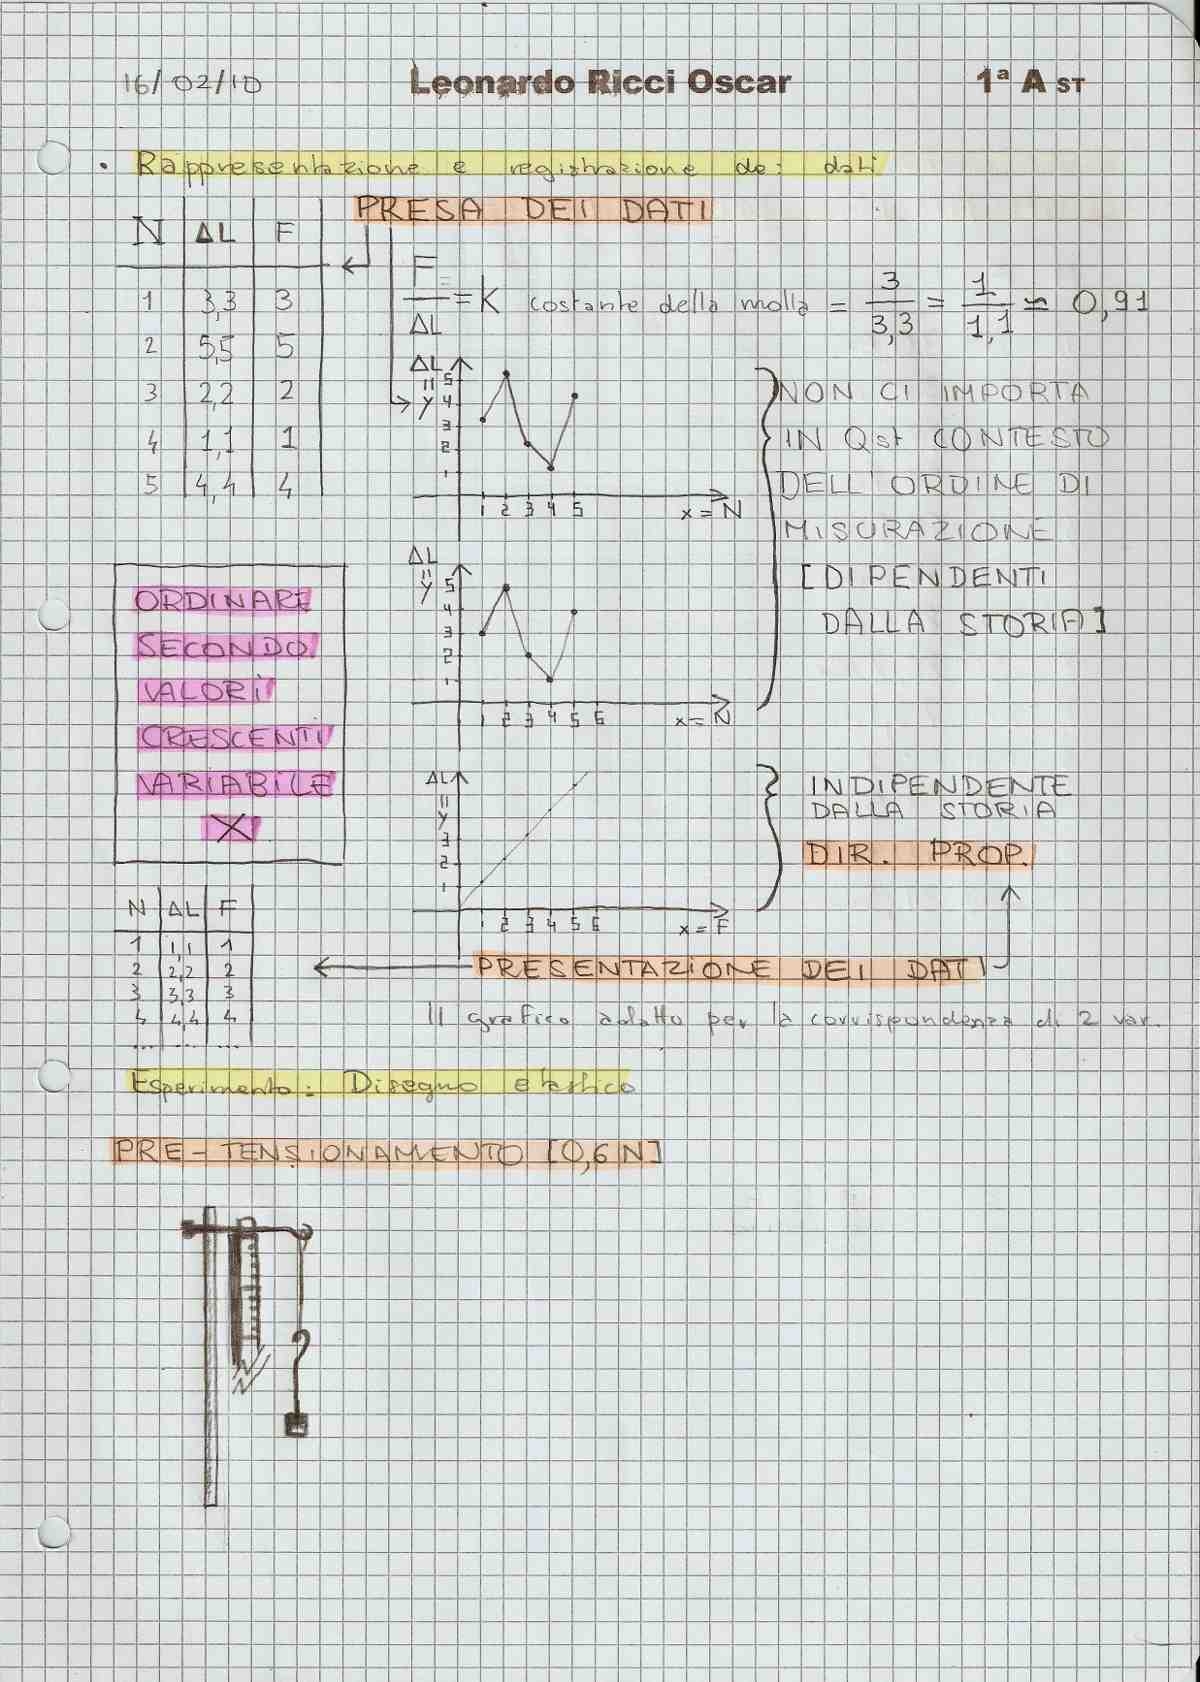 16/02/10 Leonardo Ricci Oscar 1ª A ST
• Rappresentazione e registrazione dei dati
PRESA DEI DATI
N ΔL F
1 3,3 3
2 5,5 5
3 2,2 2
4 1,1 1
5 4,4 4
F/ΔL = K costante della molla = 3/3,3 = 1/1,1 ≃ 0,91
ΔL = y
5
4
3
2
1
1 2 3 4 5 x = N
ΔL = y
5
4
3
2
1
1 2 3 4 5 6 x = N
NON CI IMPORTA
IN Qst CONTESTO
DELL'ORDINE DI
MISURAZIONE
[DIPENDENTI
DALLA STORIA]
ORDINARE
SECONDO
VALORI
CRESCENTI
VARIABILE
X
ΔL = y
3
2
1
1 2 3 4 5 6 x = F
INDIPENDENTE
DALLA STORIA
DIR. PROP.
N ΔL F
1 1,1 1
2 2,2 2
3 3,3 3
4 4,4 4
... ... ...
PRESENTAZIONE DEI DATI
Il grafico adatto per la corrispondenza di 2 var.
Esperimento: Disegno elastico
PRE-TENSIONAMENTO [0,6 N]